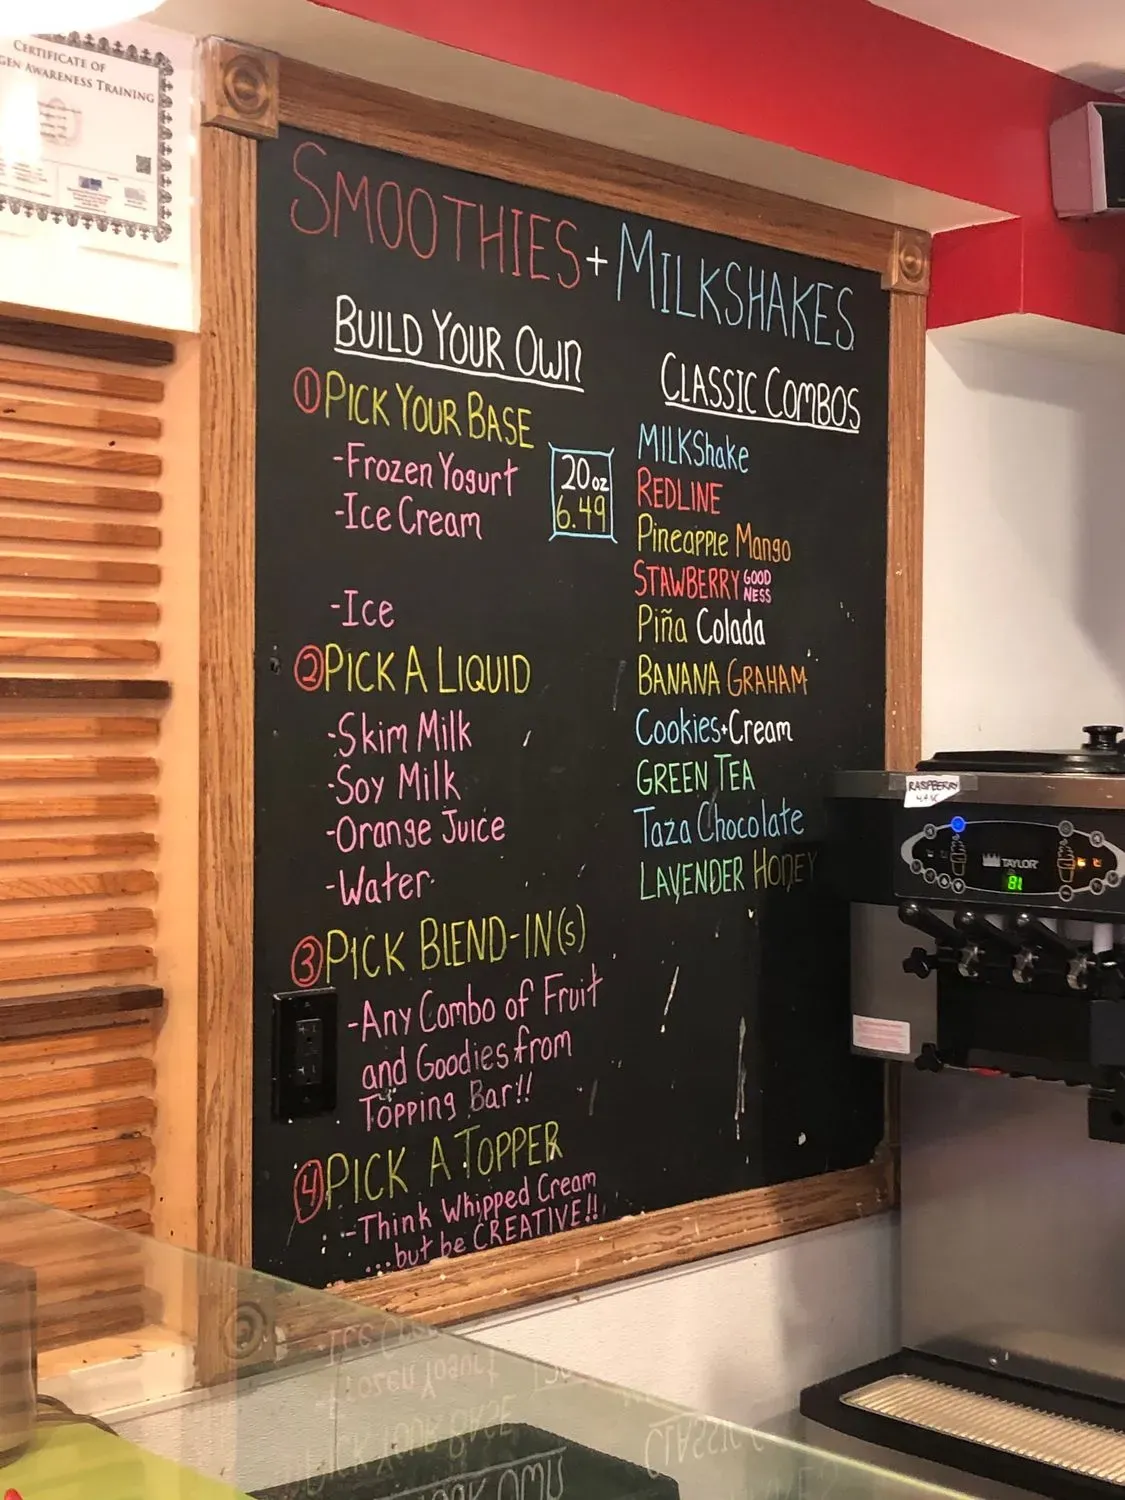 CERTIFICATE OF
GEN AWARENESS TRAINING
SMOOTHIES + MILKSHAKES
BUILD YOUR OWN
① PICK YOUR BASE
-Frozen Yogurt
-Ice Cream
20oz
6.49
-Ice
② PICK A LIQUID
-Skim Milk
-Soy Milk
-Orange Juice
-Water
③ PICK BLEND-IN(s)
-Any Combo of Fruit
and Goodies from
Topping Bar!!
④ PICK A TOPPER
-Think Whipped Cream
...but be CREATIVE!!
CLASSIC COMBOS
MILKShake
REDLINE
Pineapple Mango
STAWBERRY GOOD
NESS
Piña Colada
BANANA GRAHAM
Cookies+Cream
GREEN TEA
Taza Chocolate
LAVENDER HONEY
RASPBERRY
TAYLOR
81